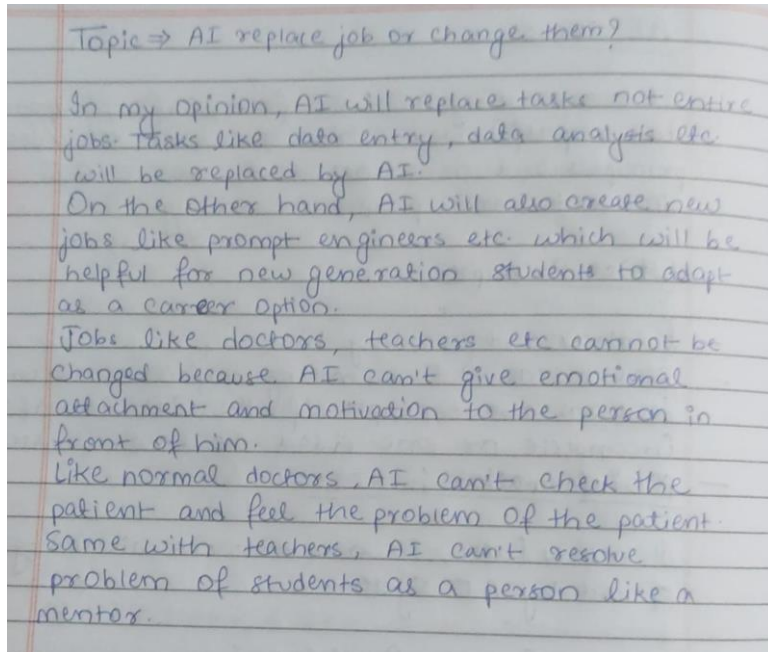 Topic ⇒ AI replace job or change them?
In my opinion, AI will replace tasks not entire
jobs. Tasks like data entry, data analysis etc.
will be replaced by AI.
On the other hand, AI will also create new
jobs like prompt engineers etc. which will be
helpful for new generation students to adapt
as a career option.
Jobs like doctors, teachers etc cannot be
changed because AI can't give emotional
attachment and motivation to the person in
front of him.
Like normal doctors, AI can't check the
patient and feel the problem of the patient.
Same with teachers, AI can't resolve
problem of students as a person like a
mentor.